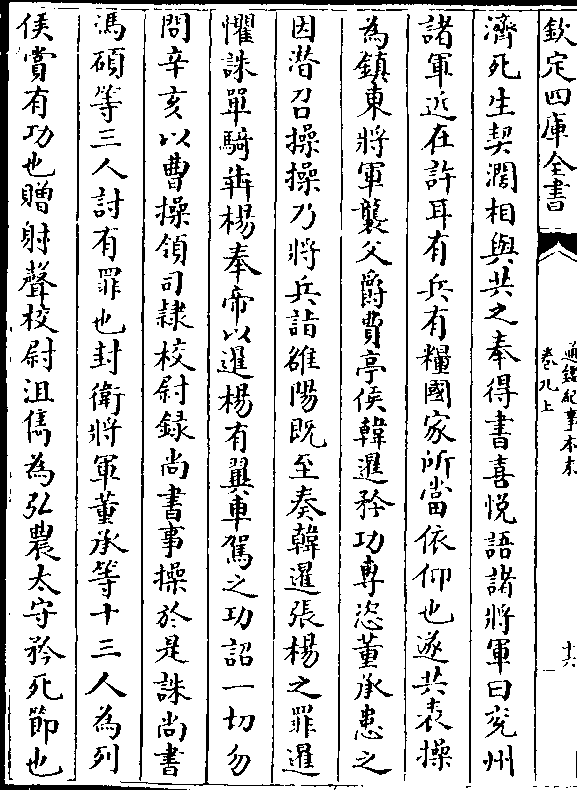 欽定四庫全書
通鑑紀事本末
卷九上
十六
濟死生契濶相與共之奉得書喜悦語諸將軍曰兗州
諸軍近在許耳有兵有糧國家所當依仰也遂共表操
為鎮東將軍襲父爵費亭侯韓暹矜功專恣董承患之
因潛召操操乃將兵詣雒陽既至奏韓暹張楊之罪暹
懼誅單騎犇楊奉帝以暹楊有翼車駕之功詔一切勿
問辛亥以曹操領司隸校尉録尚書事操於是誅尚書
馮碩等三人討有罪也封衛將軍董承等十三人為列
侯賞有功也贈射聲校尉沮儁為弘農太守矜死節也